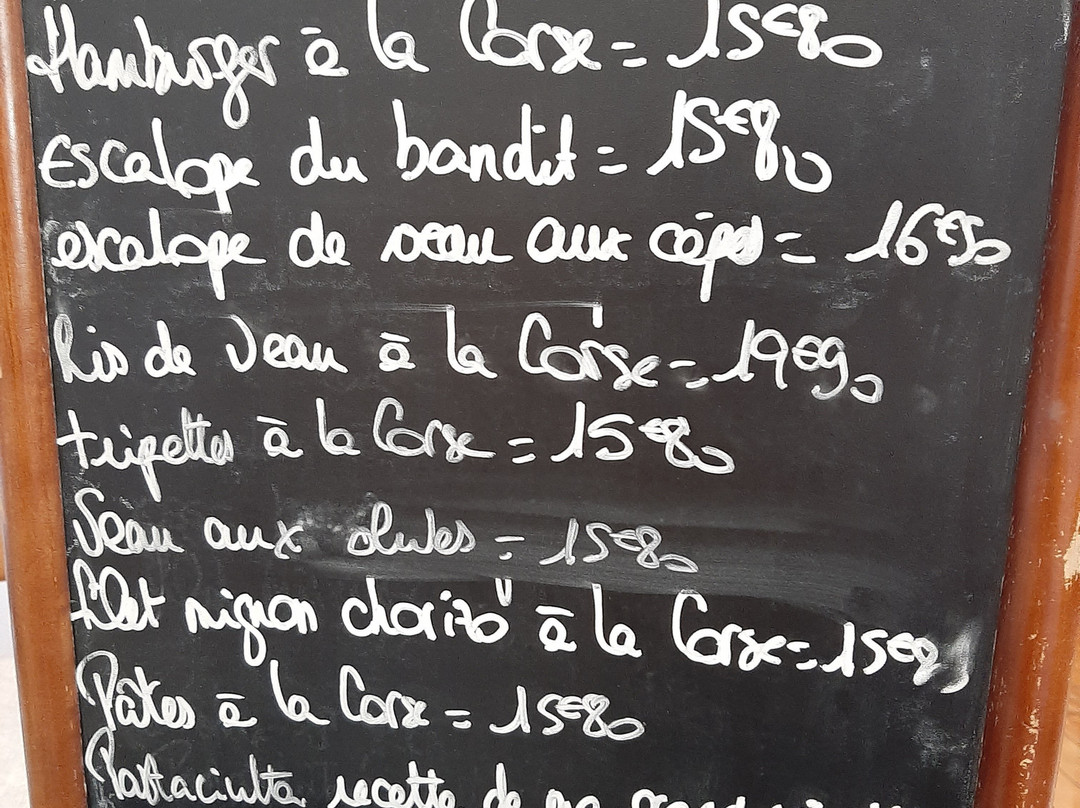 Hamburger à la Corse = 15€80
Escalope du bandit = 15€80
escalope de veau aux cèpes = 16€50
Ris de Veau à la Corse = 19€90
tripettes à la Corse = 15€80
Veau aux olives = 15€80
filet mignon chorizo à la Corse = 15€80
Pâtes à la Corse = 15€80
Pastaciutta recette de ma